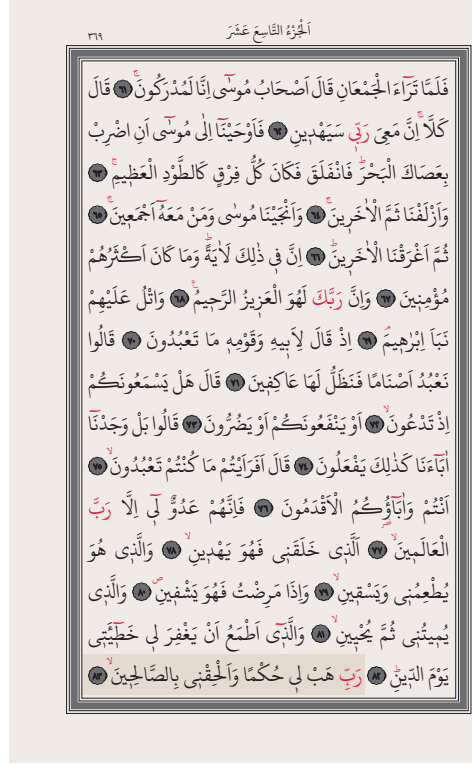 اَلْجُزْءُ التَّاسِعَ عَشَرَ
٣٦٩
فَلَمَّا تَرَٓاءَ الْجَمْعَانِ قَالَ اَصْحَابُ مُوسٰٓى اِنَّا لَمُدْرَكُونَۚ ﴿٦١﴾ قَالَ
كَلَّاۚ اِنَّ مَعِيَ رَبّ۪ي سَيَهْد۪ينِ ﴿٦٢﴾ فَاَوْحَيْنَٓا اِلٰى مُوسٰٓى اَنِ اضْرِبْ
بِعَصَاكَ الْبَحْرَۜ فَانْفَلَقَ فَكَانَ كُلُّ فِرْقٍ كَالطَّوْدِ الْعَظ۪يمِۚ ﴿٦٣﴾
وَاَزْلَفْنَا ثَمَّ الْاٰخَر۪ينَۚ ﴿٦٤﴾ وَاَنْجَيْنَا مُوسٰى وَمَنْ مَعَهُٓ اَجْمَع۪ينَۚ ﴿٦٥﴾
ثُمَّ اَغْرَقْنَا الْاٰخَر۪ينَۜ ﴿٦٦﴾ اِنَّ ف۪ي ذٰلِكَ لَاٰيَةًۜ وَمَا كَانَ اَكْثَرُهُمْ
مُؤْمِن۪ينَ ﴿٦٧﴾ وَاِنَّ رَبَّكَ لَهُوَ الْعَز۪يزُ الرَّح۪يمُ۟ ﴿٦٨﴾ وَاتْلُ عَلَيْهِمْ
نَبَاَ اِبْرٰه۪يمَۢ ﴿٦٩﴾ اِذْ قَالَ لِاَب۪يهِ وَقَوْمِه۪ مَا تَعْبُدُونَ ﴿٧٠﴾ قَالُوا
نَعْبُدُ اَصْنَامًا فَنَظَلُّ لَهَا عَاكِف۪ينَ ﴿٧١﴾ قَالَ هَلْ يَسْمَعُونَكُمْ
اِذْ تَدْعُونَۙ ﴿٧٢﴾ اَوْ يَنْفَعُونَكُمْ اَوْ يَضُرُّونَ ﴿٧٣﴾ قَالُوا بَلْ وَجَدْنَٓا
اٰبَٓاءَنَا كَذٰلِكَ يَفْعَلُونَ ﴿٧٤﴾ قَالَ اَفَرَاَيْتُمْ مَا كُنْتُمْ تَعْبُدُونَۙ ﴿٧٥﴾
اَنْتُمْ وَاٰبَٓاؤُكُمُ الْاَقْدَمُونَ ﴿٧٦﴾ فَاِنَّهُمْ عَدُوٌّ ل۪ٓي اِلَّا رَبَّ
الْعَالَم۪ينَۙ ﴿٧٧﴾ اَلَّذ۪ي خَلَقَن۪ي فَهُوَ يَهْد۪ينِۙ ﴿٧٨﴾ وَالَّذ۪ي هُوَ
يُطْعِمُن۪ي وَيَسْق۪ينِۙ ﴿٧٩﴾ وَاِذَا مَرِضْتُ فَهُوَ يَشْف۪ينِۖ ﴿٨٠﴾ وَالَّذ۪ي
يُم۪يتُن۪ي ثُمَّ يُحْي۪ينِۙ ﴿٨١﴾ وَالَّذ۪ٓي اَطْمَعُ اَنْ يَغْفِرَ ل۪ي خَط۪ٓيـَٔت۪ي
يَوْمَ الدّ۪ينِۜ ﴿٨٢﴾ رَبِّ هَبْ ل۪ي حُكْمًا وَاَلْحِقْن۪ي بِالصَّالِح۪ينَۙ ﴿٨٣﴾